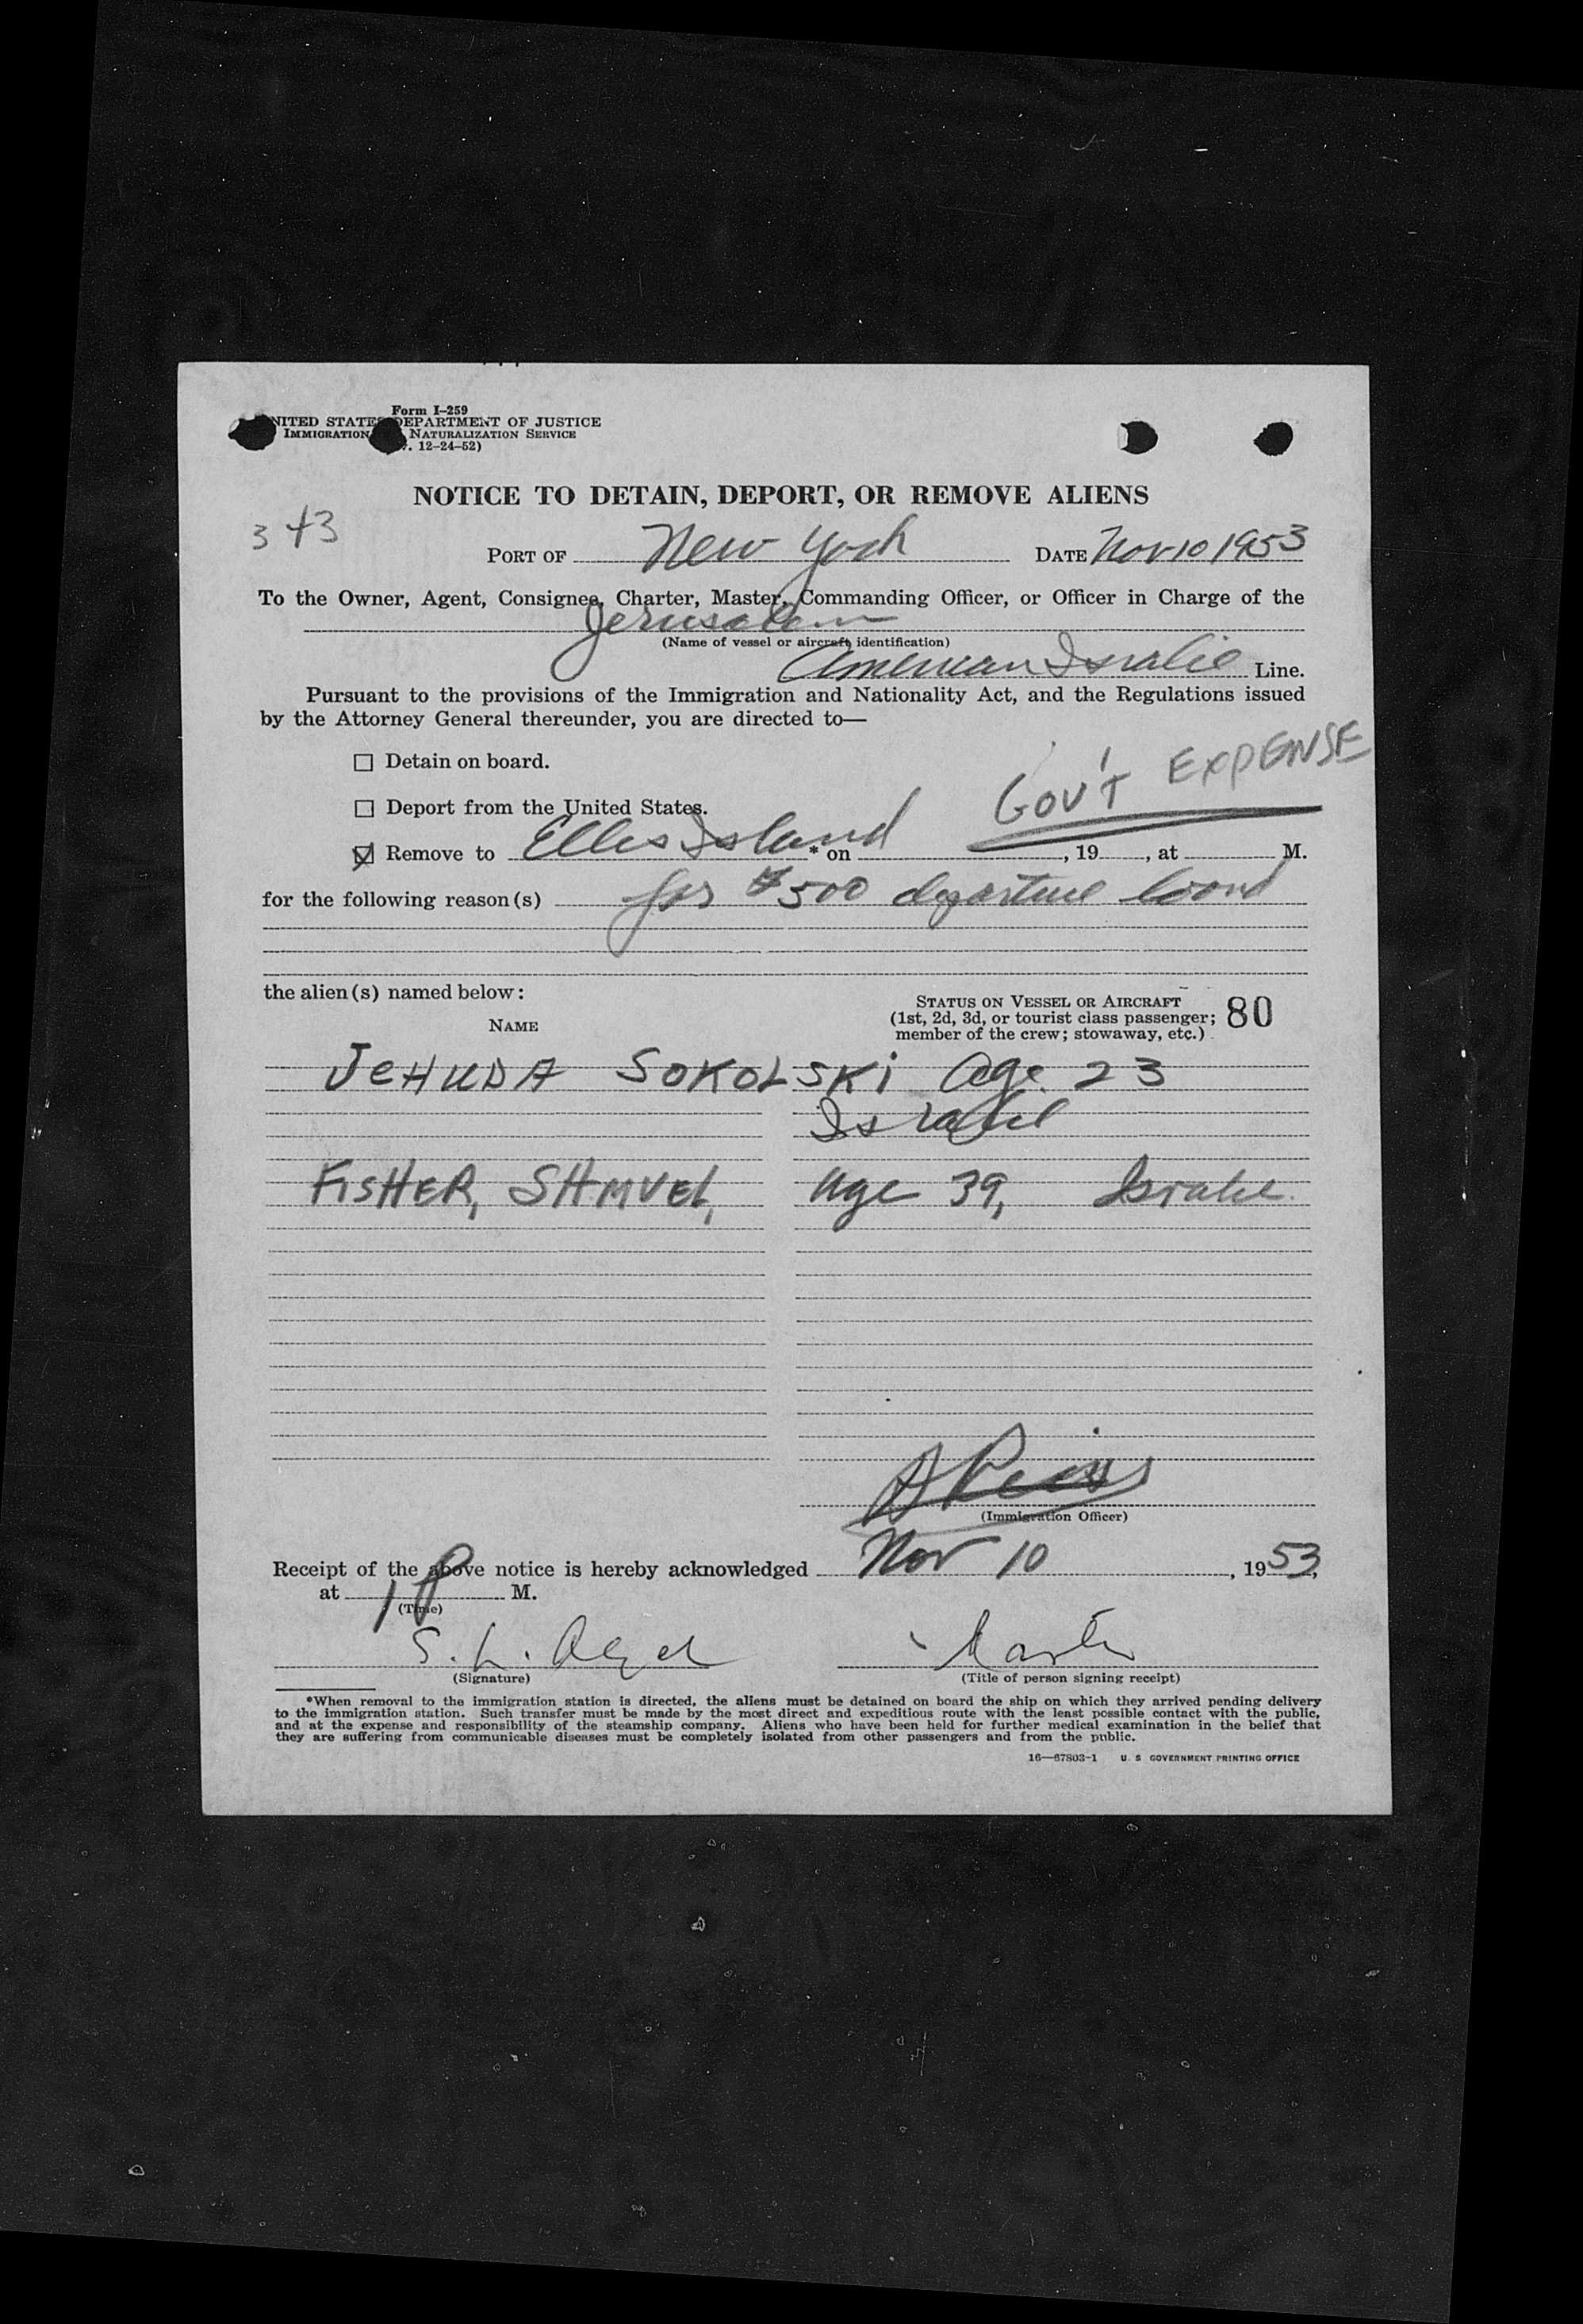 Form I-259
UNITED STATES DEPARTMENT OF JUSTICE
IMMIGRATION NATURALIZATION SERVICE
12-24-52)
NOTICE TO DETAIN, DEPORT, OR REMOVE ALIENS
343
PORT OF New York DATE Nov 10 1953
To the Owner, Agent, Consignee, Charter, Master, Commanding Officer, or Officer in Charge of the
Jerusalem
(Name of vessel or aircraft identification)
American Isralie Line.
Pursuant to the provisions of the Immigration and Nationality Act, and the Regulations issued
by the Attorney General thereunder, you are directed to—
☐ Detain on board.
GOV'T EXPENSE
☐ Deport from the United States.
☒ Remove to Ellis Island * on , 19 , at M.
for the following reason(s) for $500 departure bond
the alien(s) named below:
NAME
STATUS ON VESSEL OR AIRCRAFT
(1st, 2d, 3d, or tourist class passenger;
member of the crew; stowaway, etc.)
80
JEHUDA SOKOLSKI Age 23
Israel
FISHER, SHMUEL, Age 39,
(Immigration Officer)
Receipt of the above notice is hereby acknowledged Nov 10, 1953,
at 1 P M.
(Time)
S.
(Signature)
Master
(Title of person signing receipt)
*When removal to the immigration station is directed, the aliens must be detained on board the ship on which they arrived pending delivery
to the immigration station. Such transfer must be made by the most direct and expeditious route with the least possible contact with the public,
and at the expense and responsibility of the steamship company. Aliens who have been held for further medical examination in the belief that
they are suffering from communicable diseases must be completely isolated from other passengers and from the public.
16—67803-1 U. S. GOVERNMENT PRINTING OFFICE